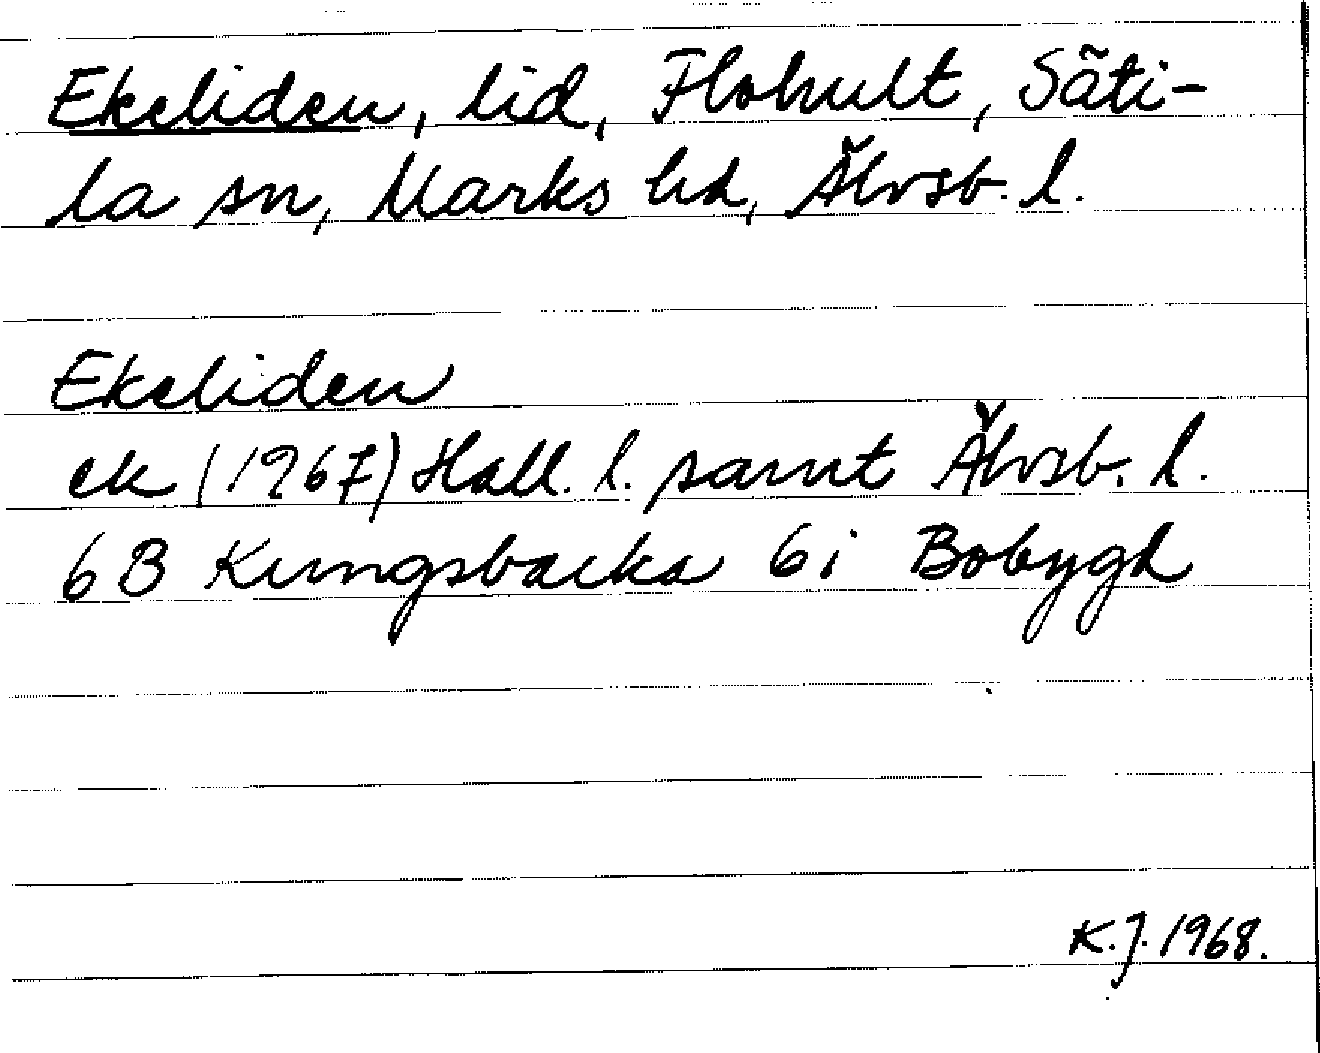 Ekeliden, lid, Flohult, Säti-
la sn, Marks hd, Älvsb. l.
Ekeliden
ek (1967) Hall. l. samt Älvsb. l.
6B Kungsbacka 6i Bobygd
K.J. 1968.